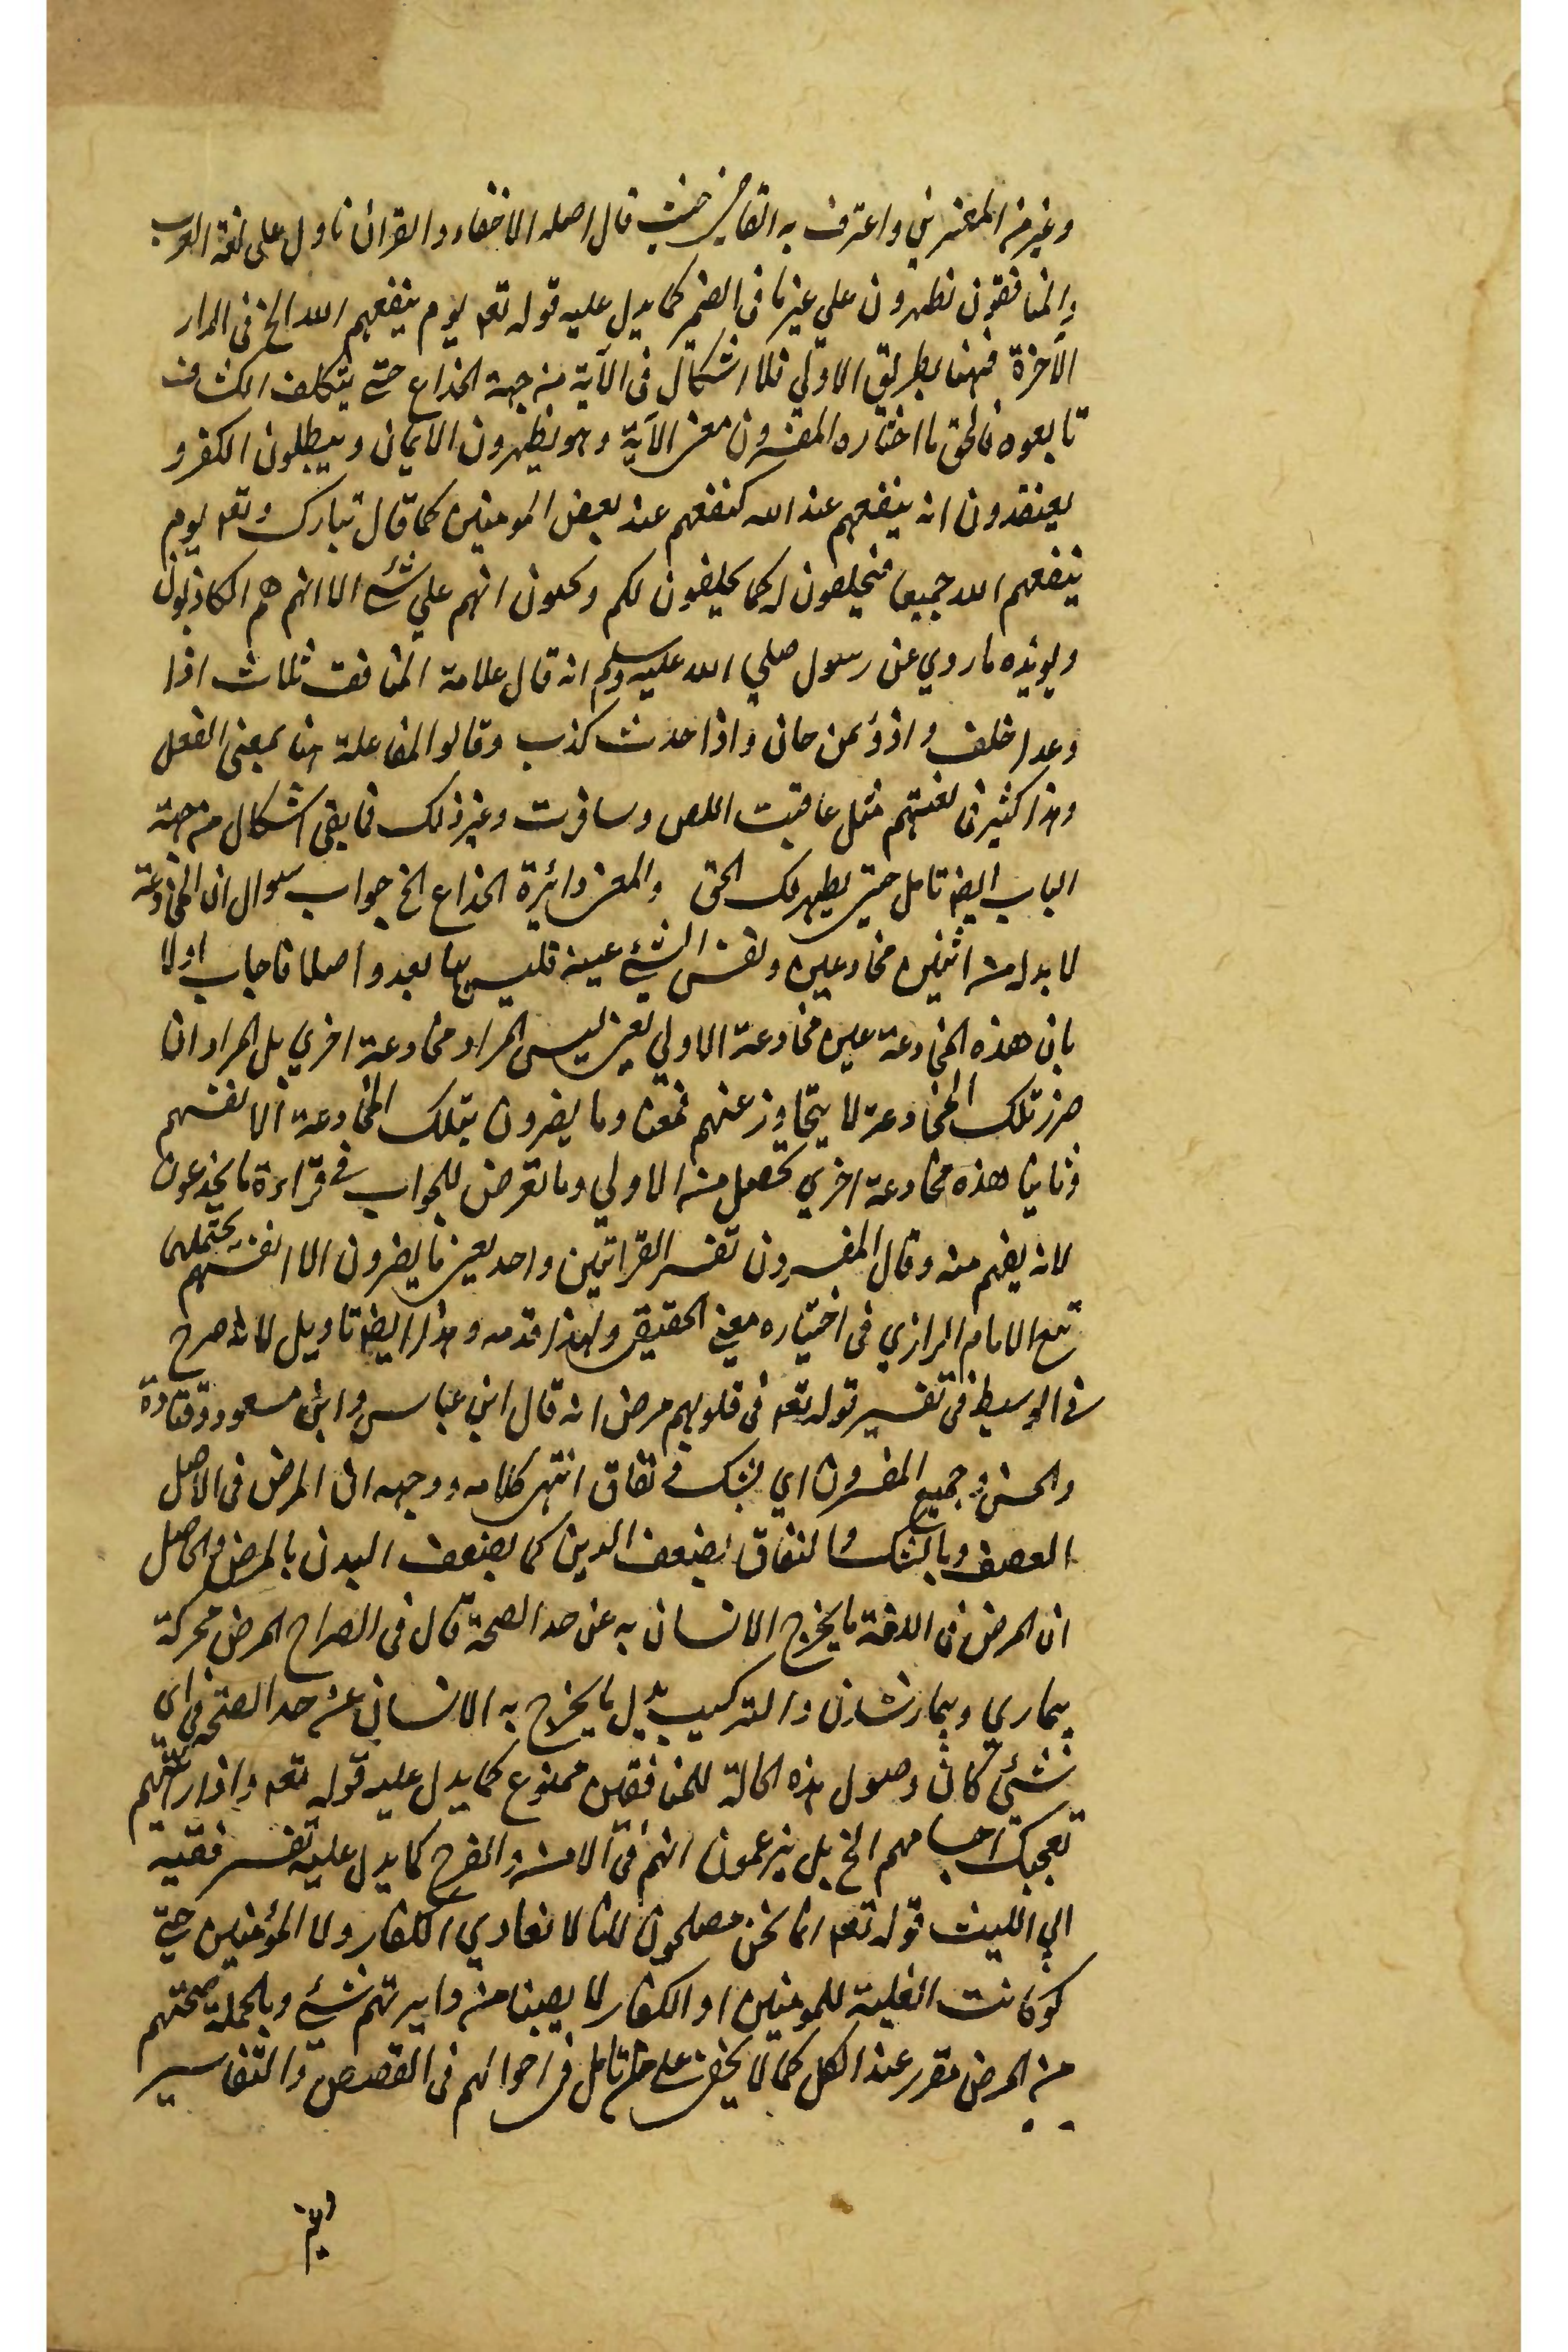 وغيره من المفسرين واعترف به القاضي حيث قال اصله الاخفاء والقرآن ناول على لغة العرب
والمنافقون يظهرون علي غير ما في الضمير كما يدل عليه قوله تعه يوم ينفعهم الله الخ في الدار
الآخرة فهنا بطريق الاولي فلا اشكال في الآية من جهة الخداع حتي يتكلف الكشاف
تابعوه فالحق ما اختاره المفسرون معنى الآية وهو يظهرون الايمان ويبطلون الكفر و
يعتقدون انه ينفعهم عند الله كنفعهم عند بعض المومنين كما قال تبارك وتعه يوم
ينفعهم الله جميعا فيحلفون له كما يحلفون لكم ويحسبون انهم علي شئ الا انهم هم الكاذبون
ويويده ما روي عن رسول صلي الله عليه وسلم انه قال علامة المنافق ثلاث اذا
وعد اخلف واذوتمن خان واذا حدث كذب وقالوا المفاعلة هنا بمعنى الفعل
وهذا كثير في لغتهم مثل عاقبت اللص وسافرت وغير ذلك فما بقي اشكال من جهة
الباب ايضا تامل حتى يظهر لك الحق والمعنى دائرة الخداع الخ جواب سوال ان المخادعة
لا بد له من اثنين مخادعين ونفس الشئ عينه فليس بها بعد واصلا فاجاب اولا
بان هذه المخادعة عين مخادعة الاولي يعني ليس المراد مخادعة اخري بل المراد ان
ضرر تلك المخادعة لا يتجاوز عنهم فمعناه وما يضرون بتلك المخادعة الا انفسهم
وثانيا هذه مخادعة اخري تحصل من الاولي وما تعرض للجواب في قراءة ما يخدعون
لانه يفهم منه وقال المفسرون تفسير القراتين واحد يعني ما يضرون الا انفسهم يحتملهما
تبع الامام الرازي في اختياره معنى الحقيقي ولهذا قدمه وهذا ايضا تاويل لانه صرح
في الوسيط في تفسير قوله تعه في قلوبهم مرض انه قال ابن عباس وابن مسعود وقتادة
والحسن وجميع المفسرون اي شك في نفاق انتهى كلامه ووجهه ان المرض في الاصل
الضعف وبالشك والنفاق يضعف الدين كما يضعف البدن بالمرض والحاصل
ان المرض في اللغة ما يخرج الانسان به عن حد الصحة قال في الصراح المرض محركة
بيماري وبيمارشدن والتركيب يدل ما يخرج به الانسان عن حد الصحة في اي
شئي كان وصول هذه الحالة للمنافقين ممنوع كما يدل عليه قوله تعه واذا رايتهم
تعجبك اجسامهم الخ بل يزعمون انهم في الامن والفرح كما يدل عليه تفسير فقيه
ابي الليث قوله تعه انما نحن مصلحون لاننا لا نعادي الكفار ولا المؤمنين حتى
لو كانت الغلبة للمومنين او الكفار لا يصيبنا من دايرتهم شئي وبالجملة صحتهم
من المرض مقرر عند الكل كما لا يخفى على من تامل في احوالهم في القصص والتفاسير